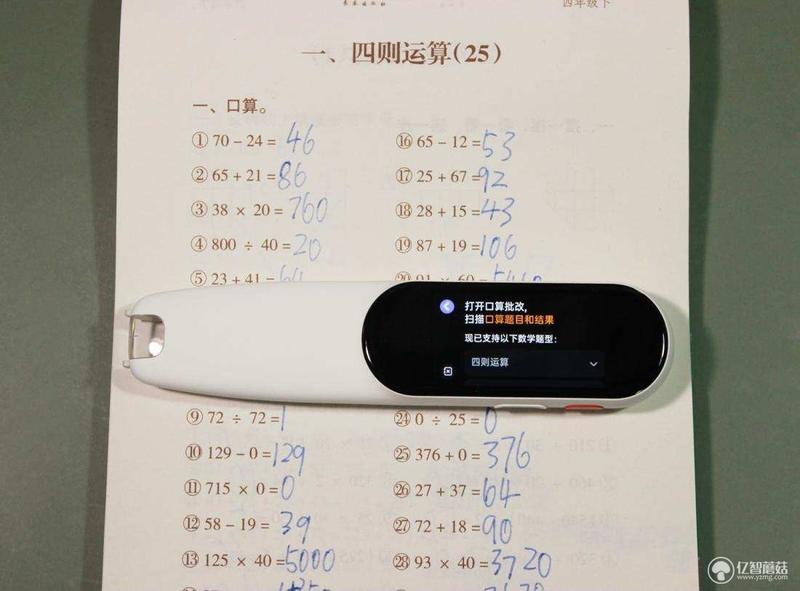 四年级下
一、四则运算(25)
一、口算。
① 70 − 24 = 46
⑯ 65 − 12 = 53
② 65 + 21 = 86
⑰ 25 + 67 = 92
③ 38 × 20 = 760
⑱ 28 + 15 = 43
④ 800 ÷ 40 = 20
⑲ 87 + 19 = 106
⑤ 23 + 41 = 64
⑳ 91 × 60 =
打开口算批改,
扫描口算题目和结果
现已支持以下数学题型:
四则运算
⑨ 72 ÷ 72 = 1
㉔ 0 ÷ 25 = 0
⑩ 129 − 0 = 129
㉕ 376 + 0 = 376
⑪ 715 × 0 = 0
㉖ 27 + 37 = 64
⑫ 58 − 19 = 39
㉗ 72 + 18 = 90
⑬ 125 × 40 = 5000
㉘ 93 × 40 = 3720
亿智蘑菇
www.yzmg.com